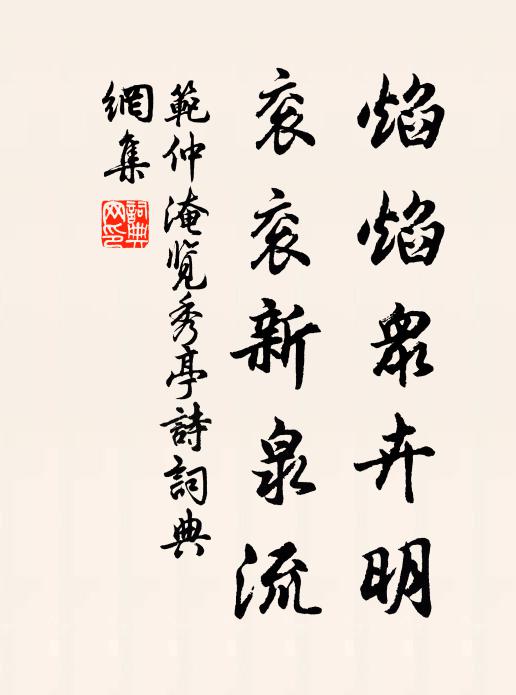 焰焰衆卉明
衮衮新泉流
範仲淹览秀亭詩詞典
網集
詞典
网印